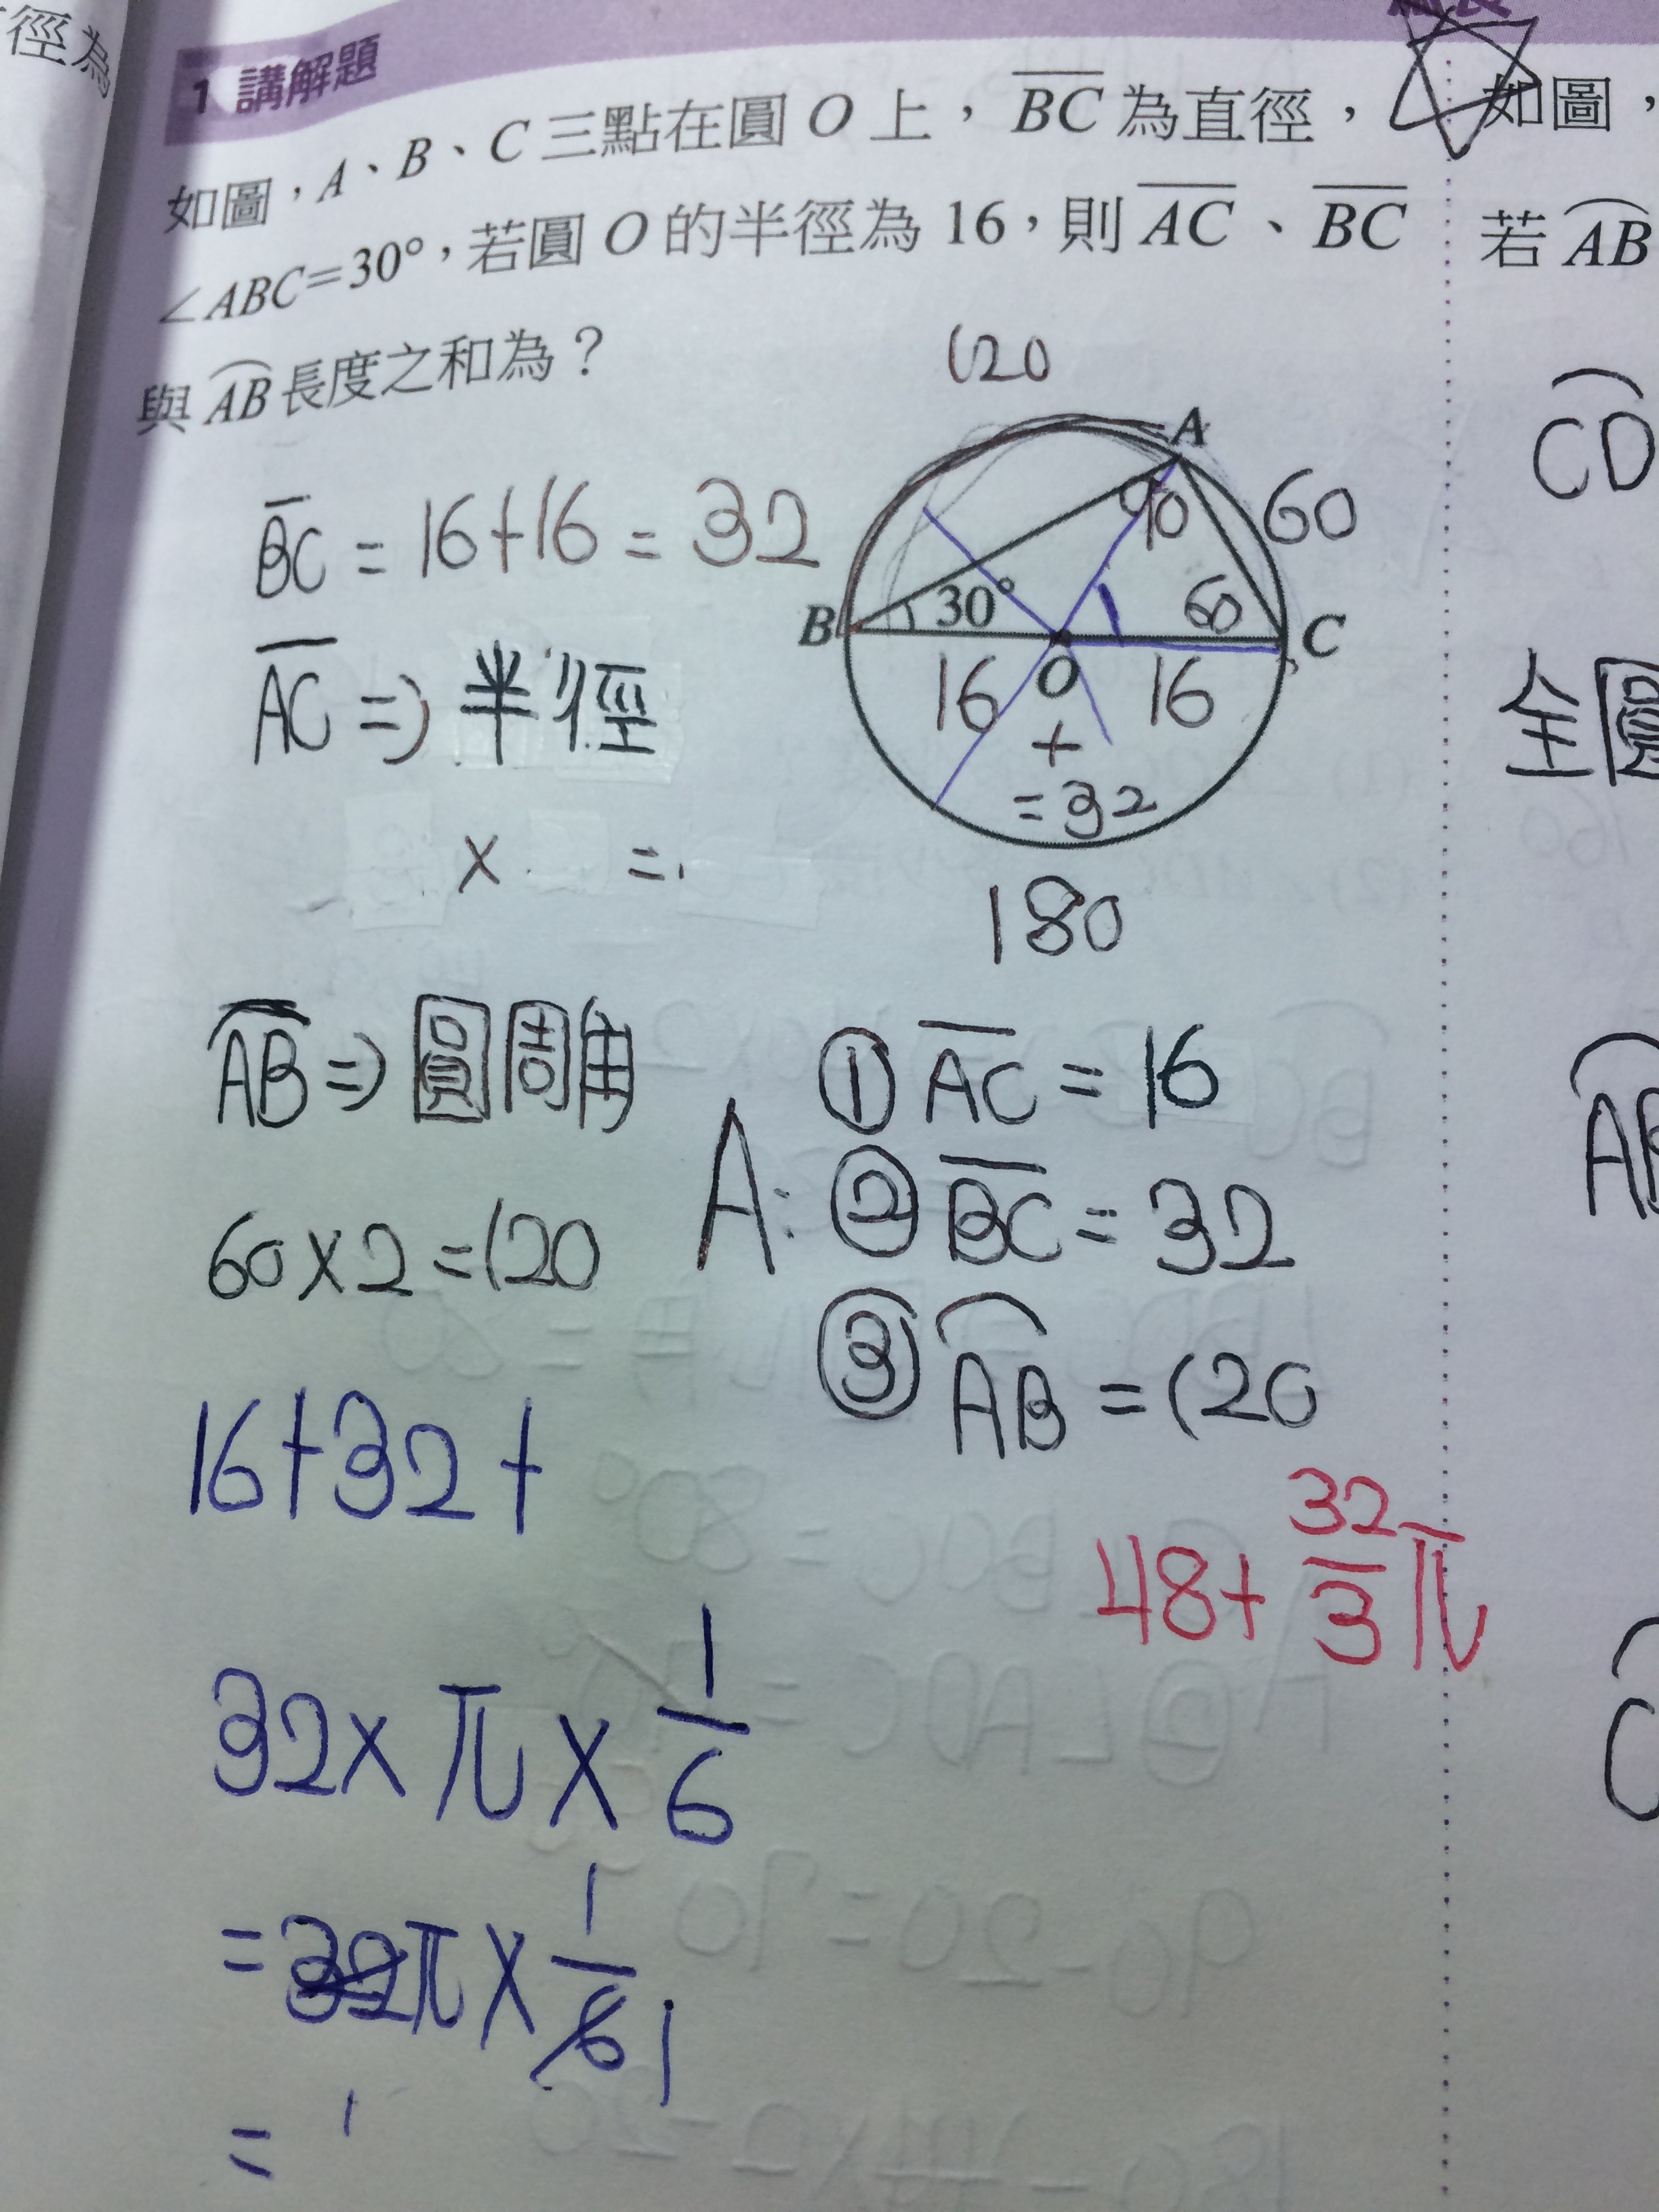 徑為
1 講解題
如圖，A、B、C三點在圓 O 上，BC為直徑，
∠ABC=30°，若圓 O 的半徑為 16，則 AC、BC
與 AB 長度之和為？
120
BC = 16+16 = 32
A
90
60
B
30°
60
C
16
O
16
+
=32
180
AC ⇒ 半徑
× =
AB ⇒ 圓周角
60×2=120
A: ① AC = 16
② BC = 32
③ AB = 120
16+32+
48+32/3π
32×π×1/6
=32π×1/6 1
=
如圖，
若 AB
CD
全圓
AB